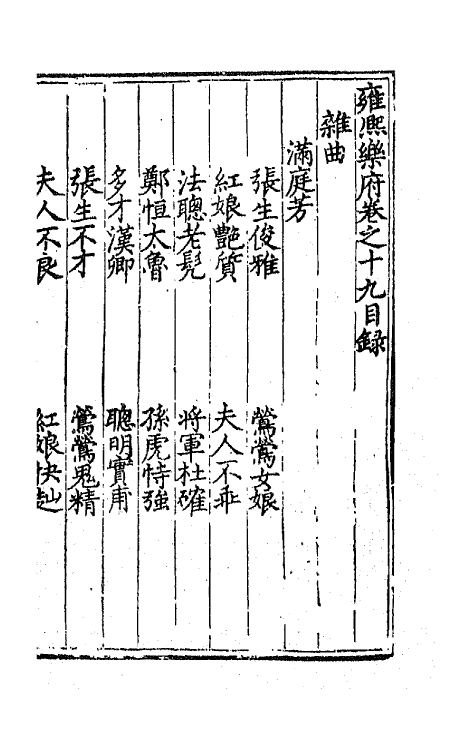 雍熈樂府卷之十九目錄
雜曲
滿庭芳
張生俊雅 鶯鶯女娘
紅娘艷質 夫人不乖
法聰老髡 將軍杜確
鄭恒太魯 孫虎恃強
多才漢卿 聰明實甫
張生不才 鶯鶯鬼精
夫人不良 紅娘快赸